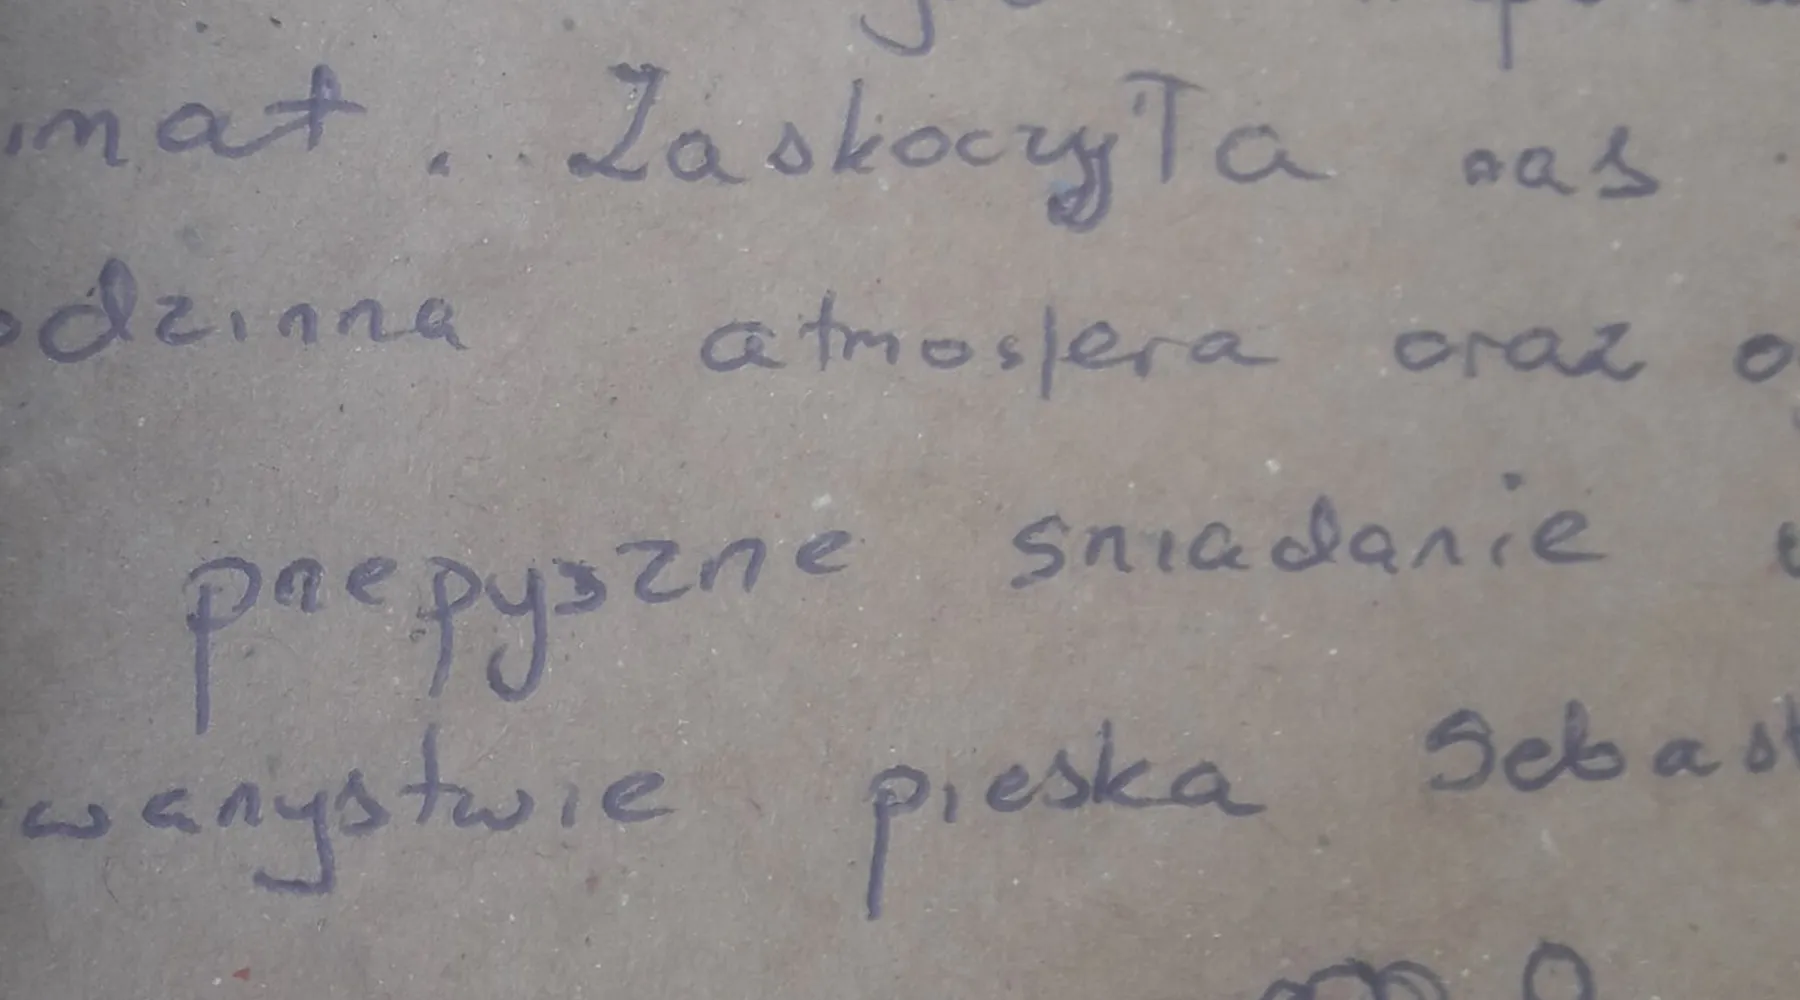 imat. Zaskoczyła nas
odzinna atmosfera oraz o
pnepyszne sniadanie
wanystwie pieska Sebast